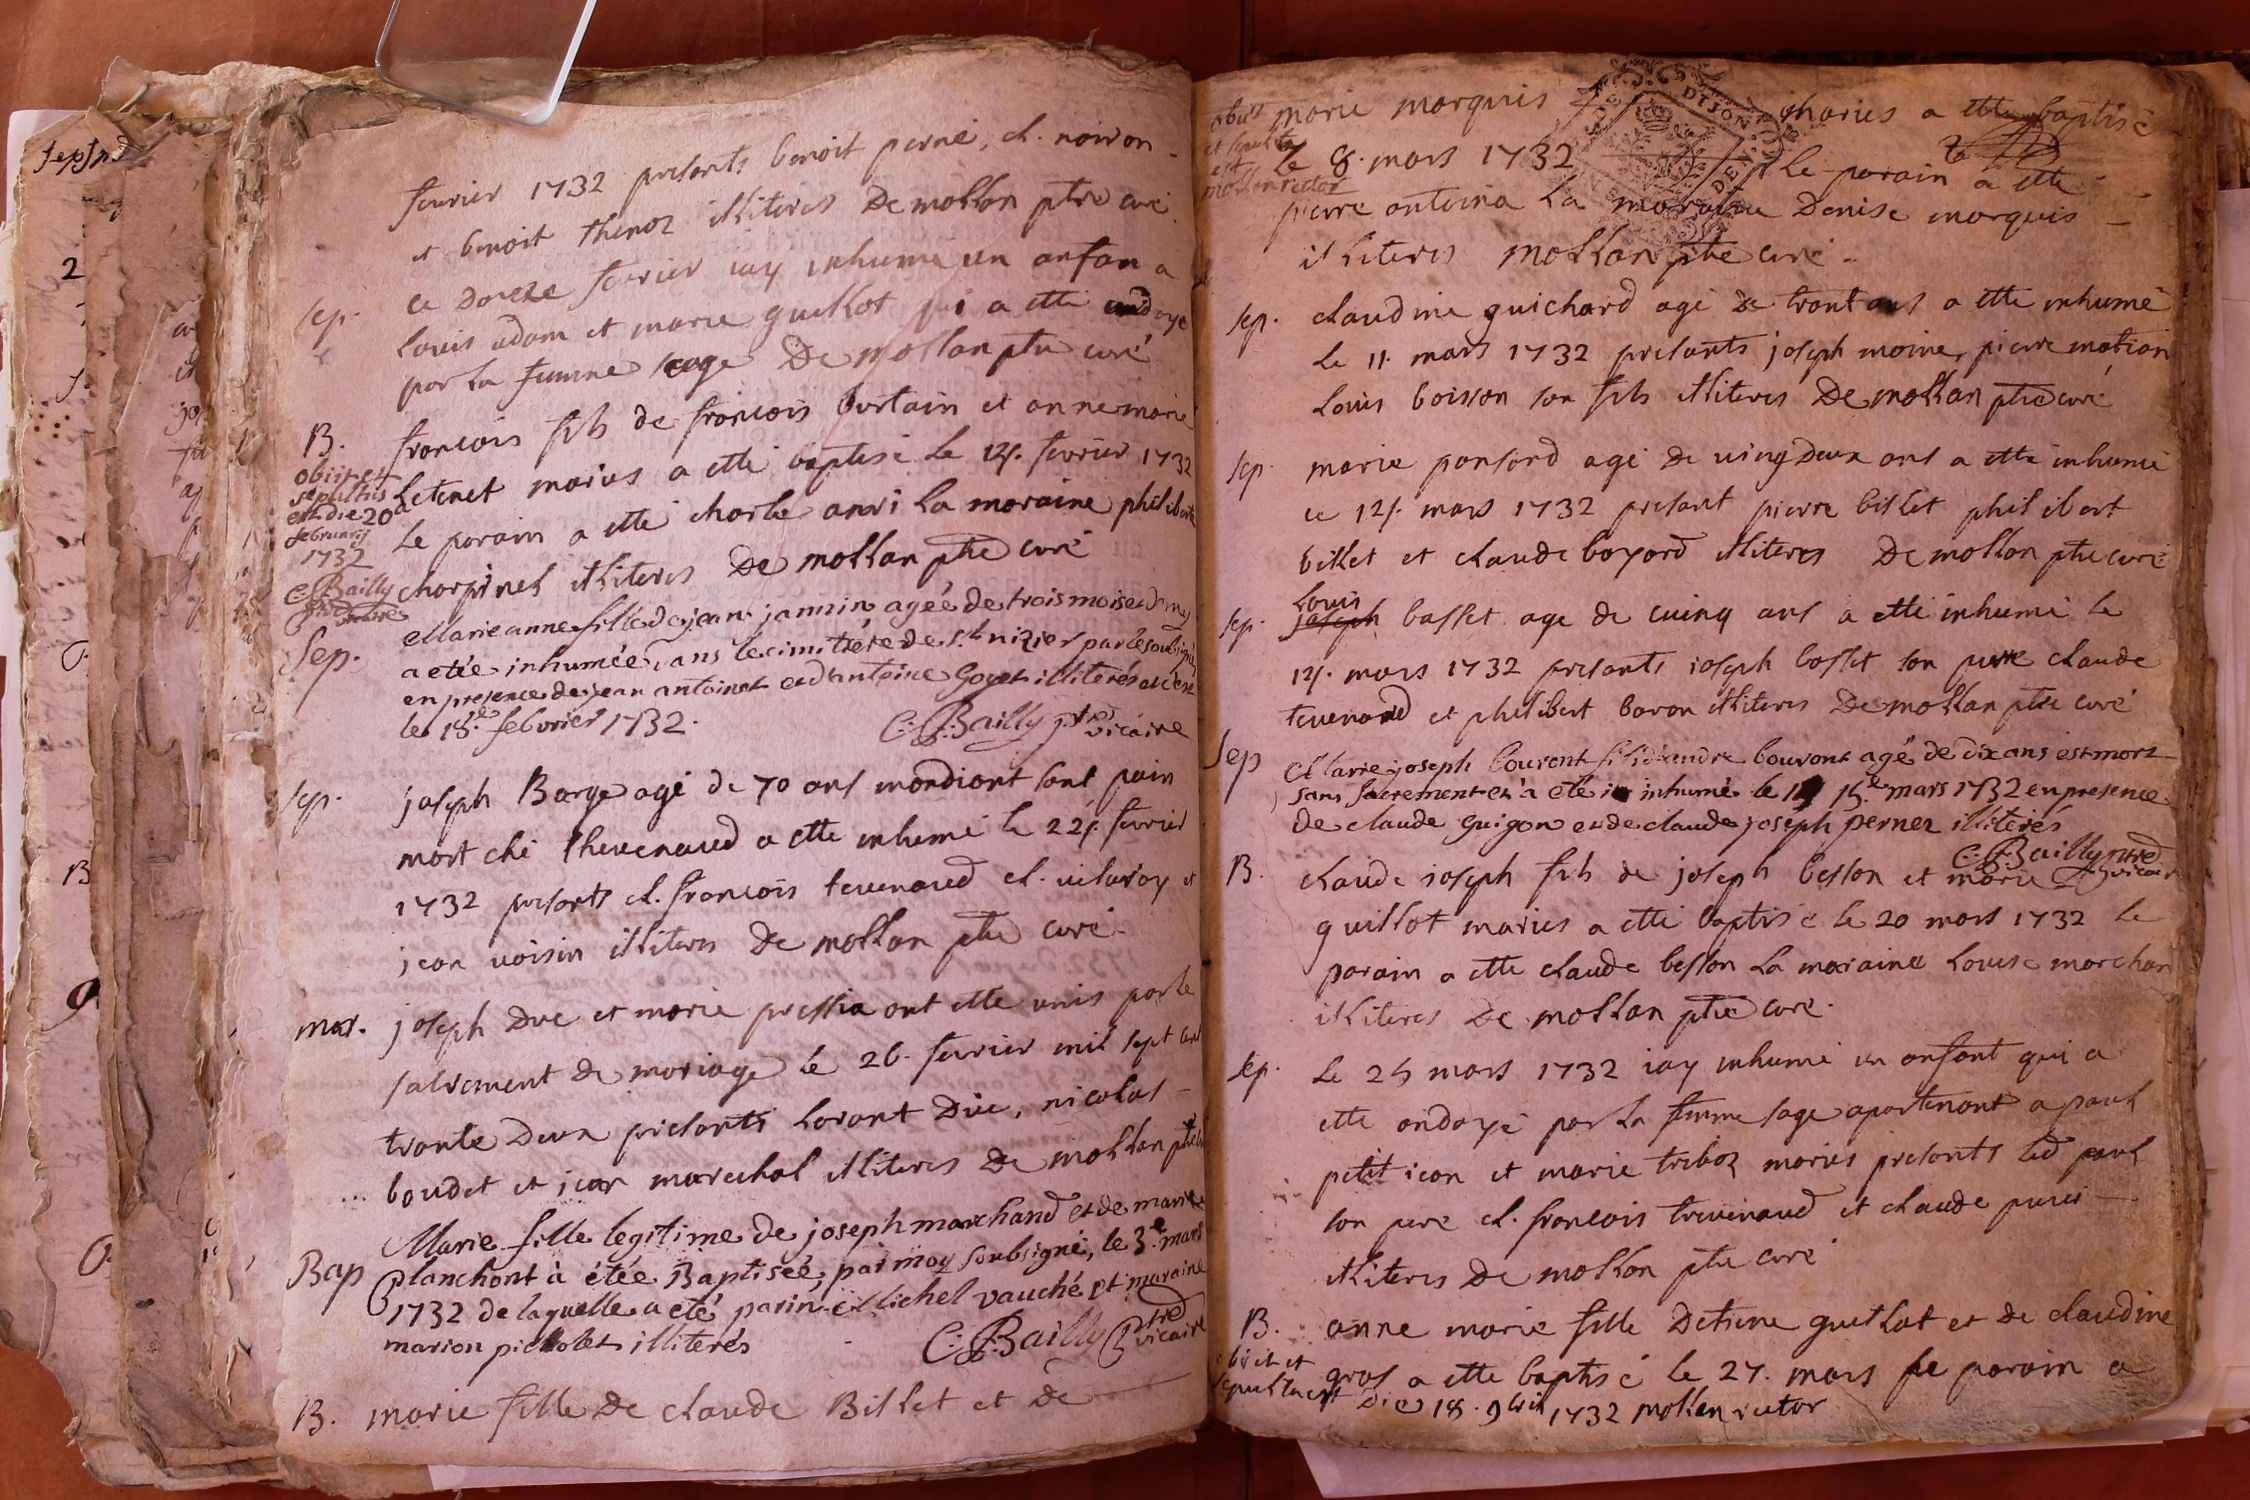 fevrier 1732 presants benoit perné, cl. noiron
et benoit thenoz illiteres De mollan ptre curé
sep. ce douze fevrier iay inhumé un anfan a
louis adam et marie guillot qui a etté ondoyé
par la femme sage De mollan ptre curé
B. francois fils de francois furtain et anne marie
letenet mariés a etté baptisé le 12. fevrier 1732
le parain a etté charle anri la maraine philiberte
charpinel illiteres De mollan ptre curé
obiit et
sepultus
est die 20
februarij
1732
C: Bailly
ptre vicaire
Sep. Marie anne fille de jean jannin agée de trois mois et demy
a etée inhumée dans le cimitiere de st. nizier par le soubsigné
en presence de jean antoinet et d'antoine Goyet illiterés
le 18. febvrier 1732. C: Bailly ptre vicaire
sep. joseph Barge agé de 70 ans mandiant sont pain
mort ché thevenaud a etté inhumé le 22. fevrier
1732 presants cl. francois tevenaud cl. et
jean voisin illiteres De mollan ptre curé
mar. joseph Duc et marie pressia ont etté unis par le
sacrement de mariage le 26. fevrier mil sept cent
trante deux presants lorant Duc, nicolas
boudet et jean marechal illiteres De mollan ptre
Bap Marie fille legitime de joseph marchand et de marie
planchont à étée Baptisée, par moy soubsigné, le 3.e mars
1732 de laquelle a eté parin Michel vauché et maraine
marion picholet illiterés C: Bailly ptre vicaire
B. marie fille De claude Billet et de
marie marquis mariés a etté baptisé
le 8. mars 1732 le parain a etté
pierre antoina la maraine Denise marquis
illiteres mollan ptre curé
obiit
et sepulta
est
mollan rector
sep. claudine guichard agé de trant ans a etté inhumé
le 11. mars 1732 presants joseph moine, pierre
louis boisson son fils illiteres De mollan ptre curé
sep. marie ponsard agé de vingdeux ans a etté inhumé
ce 12. mars 1732 presant pierre billet philibert
billet et claude boyard illiteres De mollan ptre curé
louis
sep. joseph basset agé de cuinq ans a etté inhumé le
12. mars 1732 presants joseph basset son pere claude
tevenaud et philibert baron illiteres De mollan ptre curé
Sep Marie joseph bouront fils d'andre bouront agé de dix ans est mort
sans sacrement et à eté inhumé le 15.e mars 1732 en presence
de claude guigon et de claude joseph pernez illiterés
C: Bailly ptre vicaire
B. claude joseph fils de joseph besson et marie
guillot mariés a etté baptisé le 20 mars 1732 le
parain a etté claude besson la maraine louise marchan
illiteres De mollan ptre curé.
sep. le 25 mars 1732 iay inhumé un anfant qui a
etté ondoyé par la femme sage apartenant a paul
petit jean et marie treboz mariés presants led paul
son pere cl. francois trevenaud et claude
illiteres De mollan ptre curé
B. anne marie fille Detiene guillot et de claudine
gras a etté baptisé le 27. mars le parain a
obiit et
sepulta est die 18. 9bris 1732 mollan rector